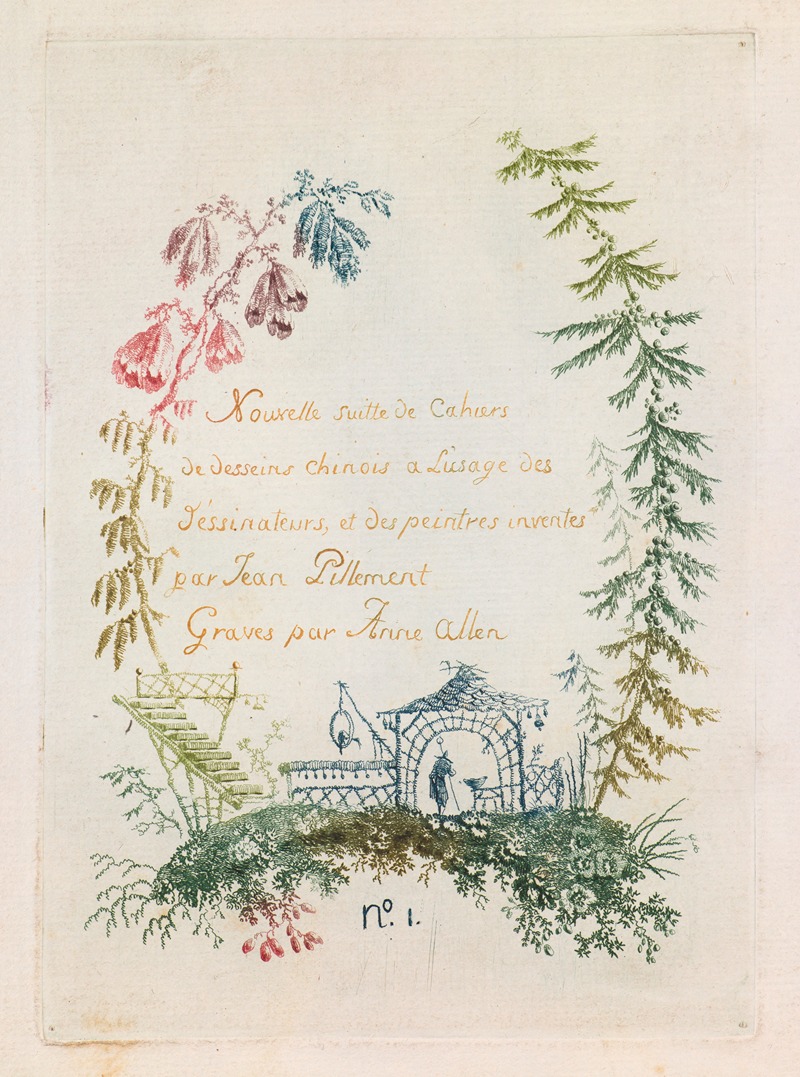 Nouvelle suitte de Cahiers
de desseins chinois a L'usage des
déssinateurs, et des peintres inventes
par Jean Pillement
Graves par Anne allen
n.º 1.